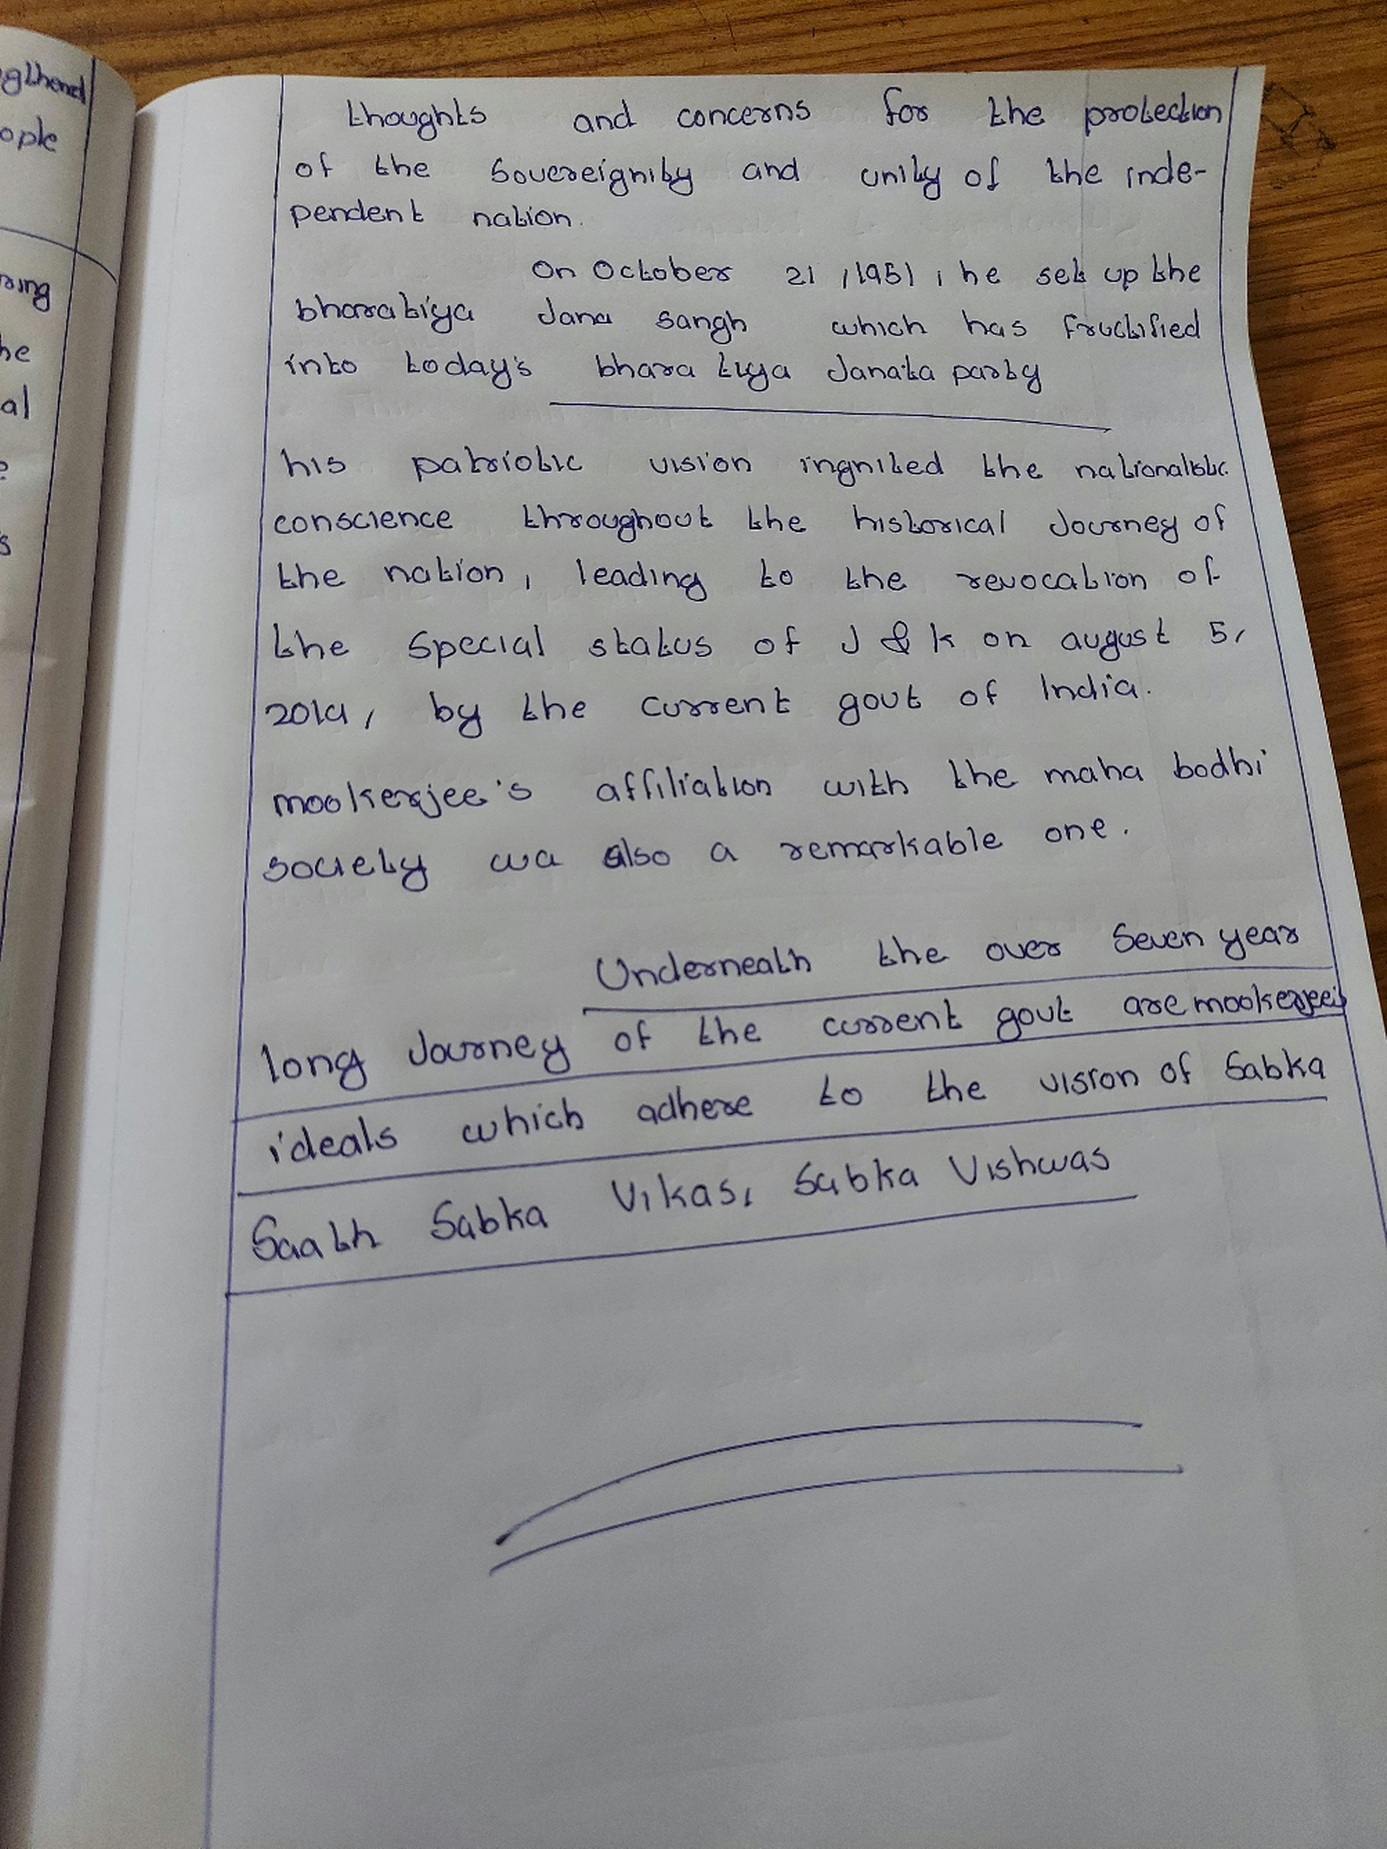 glhend
ople
ring
he
al
e
s
thoughts and concerns for the protection
of the Sovereignity and unity of the inde-
pendent nation.
On October 21, 1951, he set up the
bharatiya Jana Sangh which has fructified
into today's bharatiya Janata party
his patriotic vision ingnited the nationalistic
conscience throughout the historical Journey of
the nation, leading to the revocation of
the Special status of J & k on august 5,
2019, by the current govt of India.
mookerjee's affiliation with the maha bodhi
society wa also a remarkable one.
Underneath the over Seven year
long Journey of the current govt are mookerjee's
ideals which adhere to the vision of Sabka
Saath Sabka Vikas, Sabka Vishwas